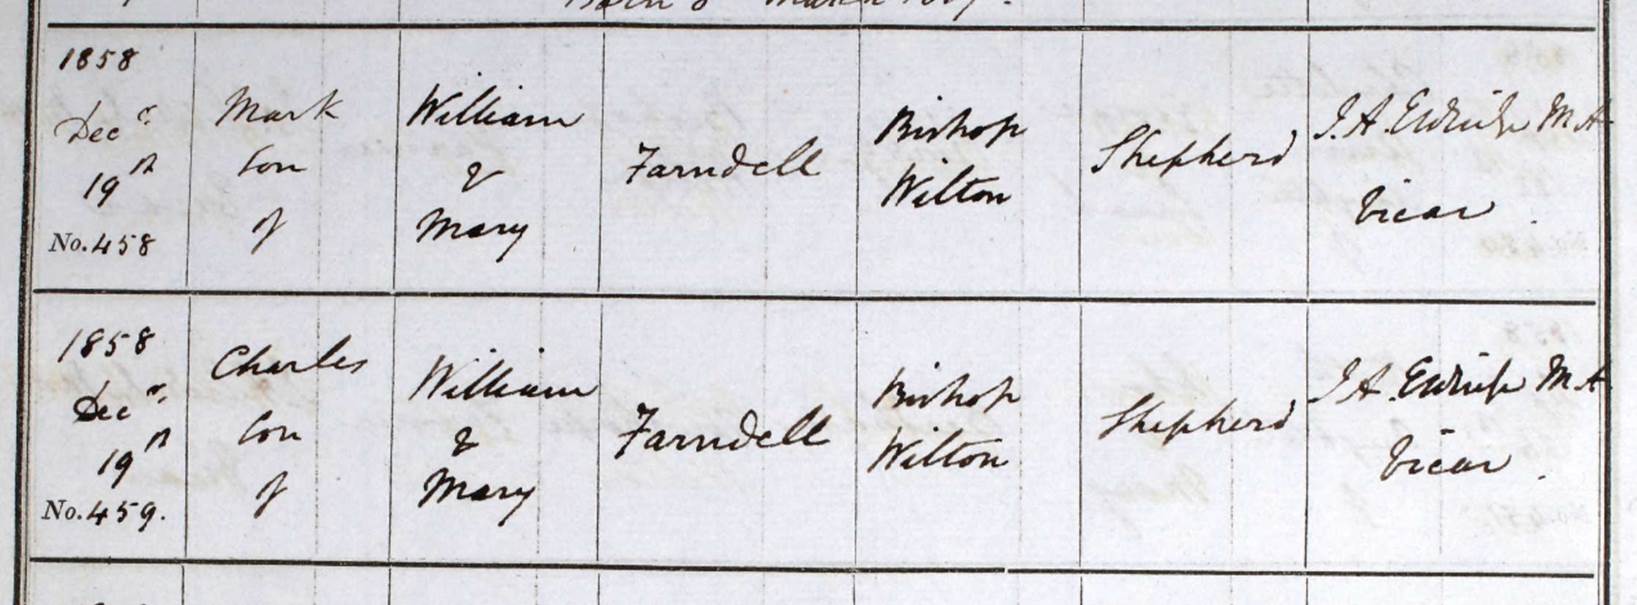 Born 8 March 1857.
1858
Decr.
19th
No. 458
Mark
Son
of
William
&
Mary
Farndell
Bishop
Wilton
Shepherd
J. A. M.A
Vicar.
1858
Decr.
19th
No. 459.
Charles
Son
of
William
&
Mary
Farndell
Bishop
Wilton
Shepherd
J A. M.A
Vicar.